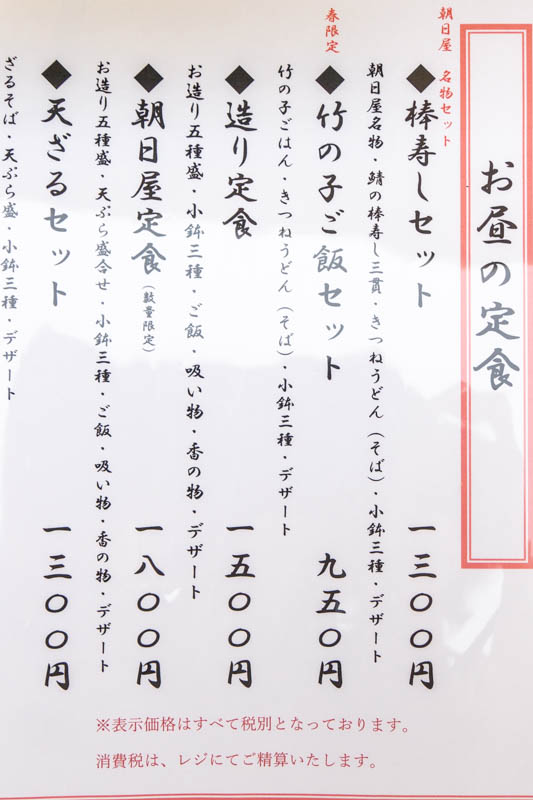 お昼の定食
朝日屋 名物セット
◆棒寿しセット 一三〇〇円
朝日屋名物・鯖の棒寿し三貫・きつねうどん(そば)・小鉢三種・デザート
春限定
◆竹の子ご飯セット 九五〇円
竹の子ごはん・きつねうどん(そば)・小鉢三種・デザート
◆造り定食 一五〇〇円
お造り五種盛・小鉢三種・ご飯・吸い物・香の物・デザート
◆朝日屋定食(数量限定) 一八〇〇円
お造り五種盛・天ぷら盛合せ・小鉢三種・ご飯・吸い物・香の物・デザート
◆天ざるセット 一三〇〇円
ざるそば・天ぷら盛・小鉢三種・デザート
※表示価格はすべて税別となっております。
消費税は、レジにてご精算いたします。